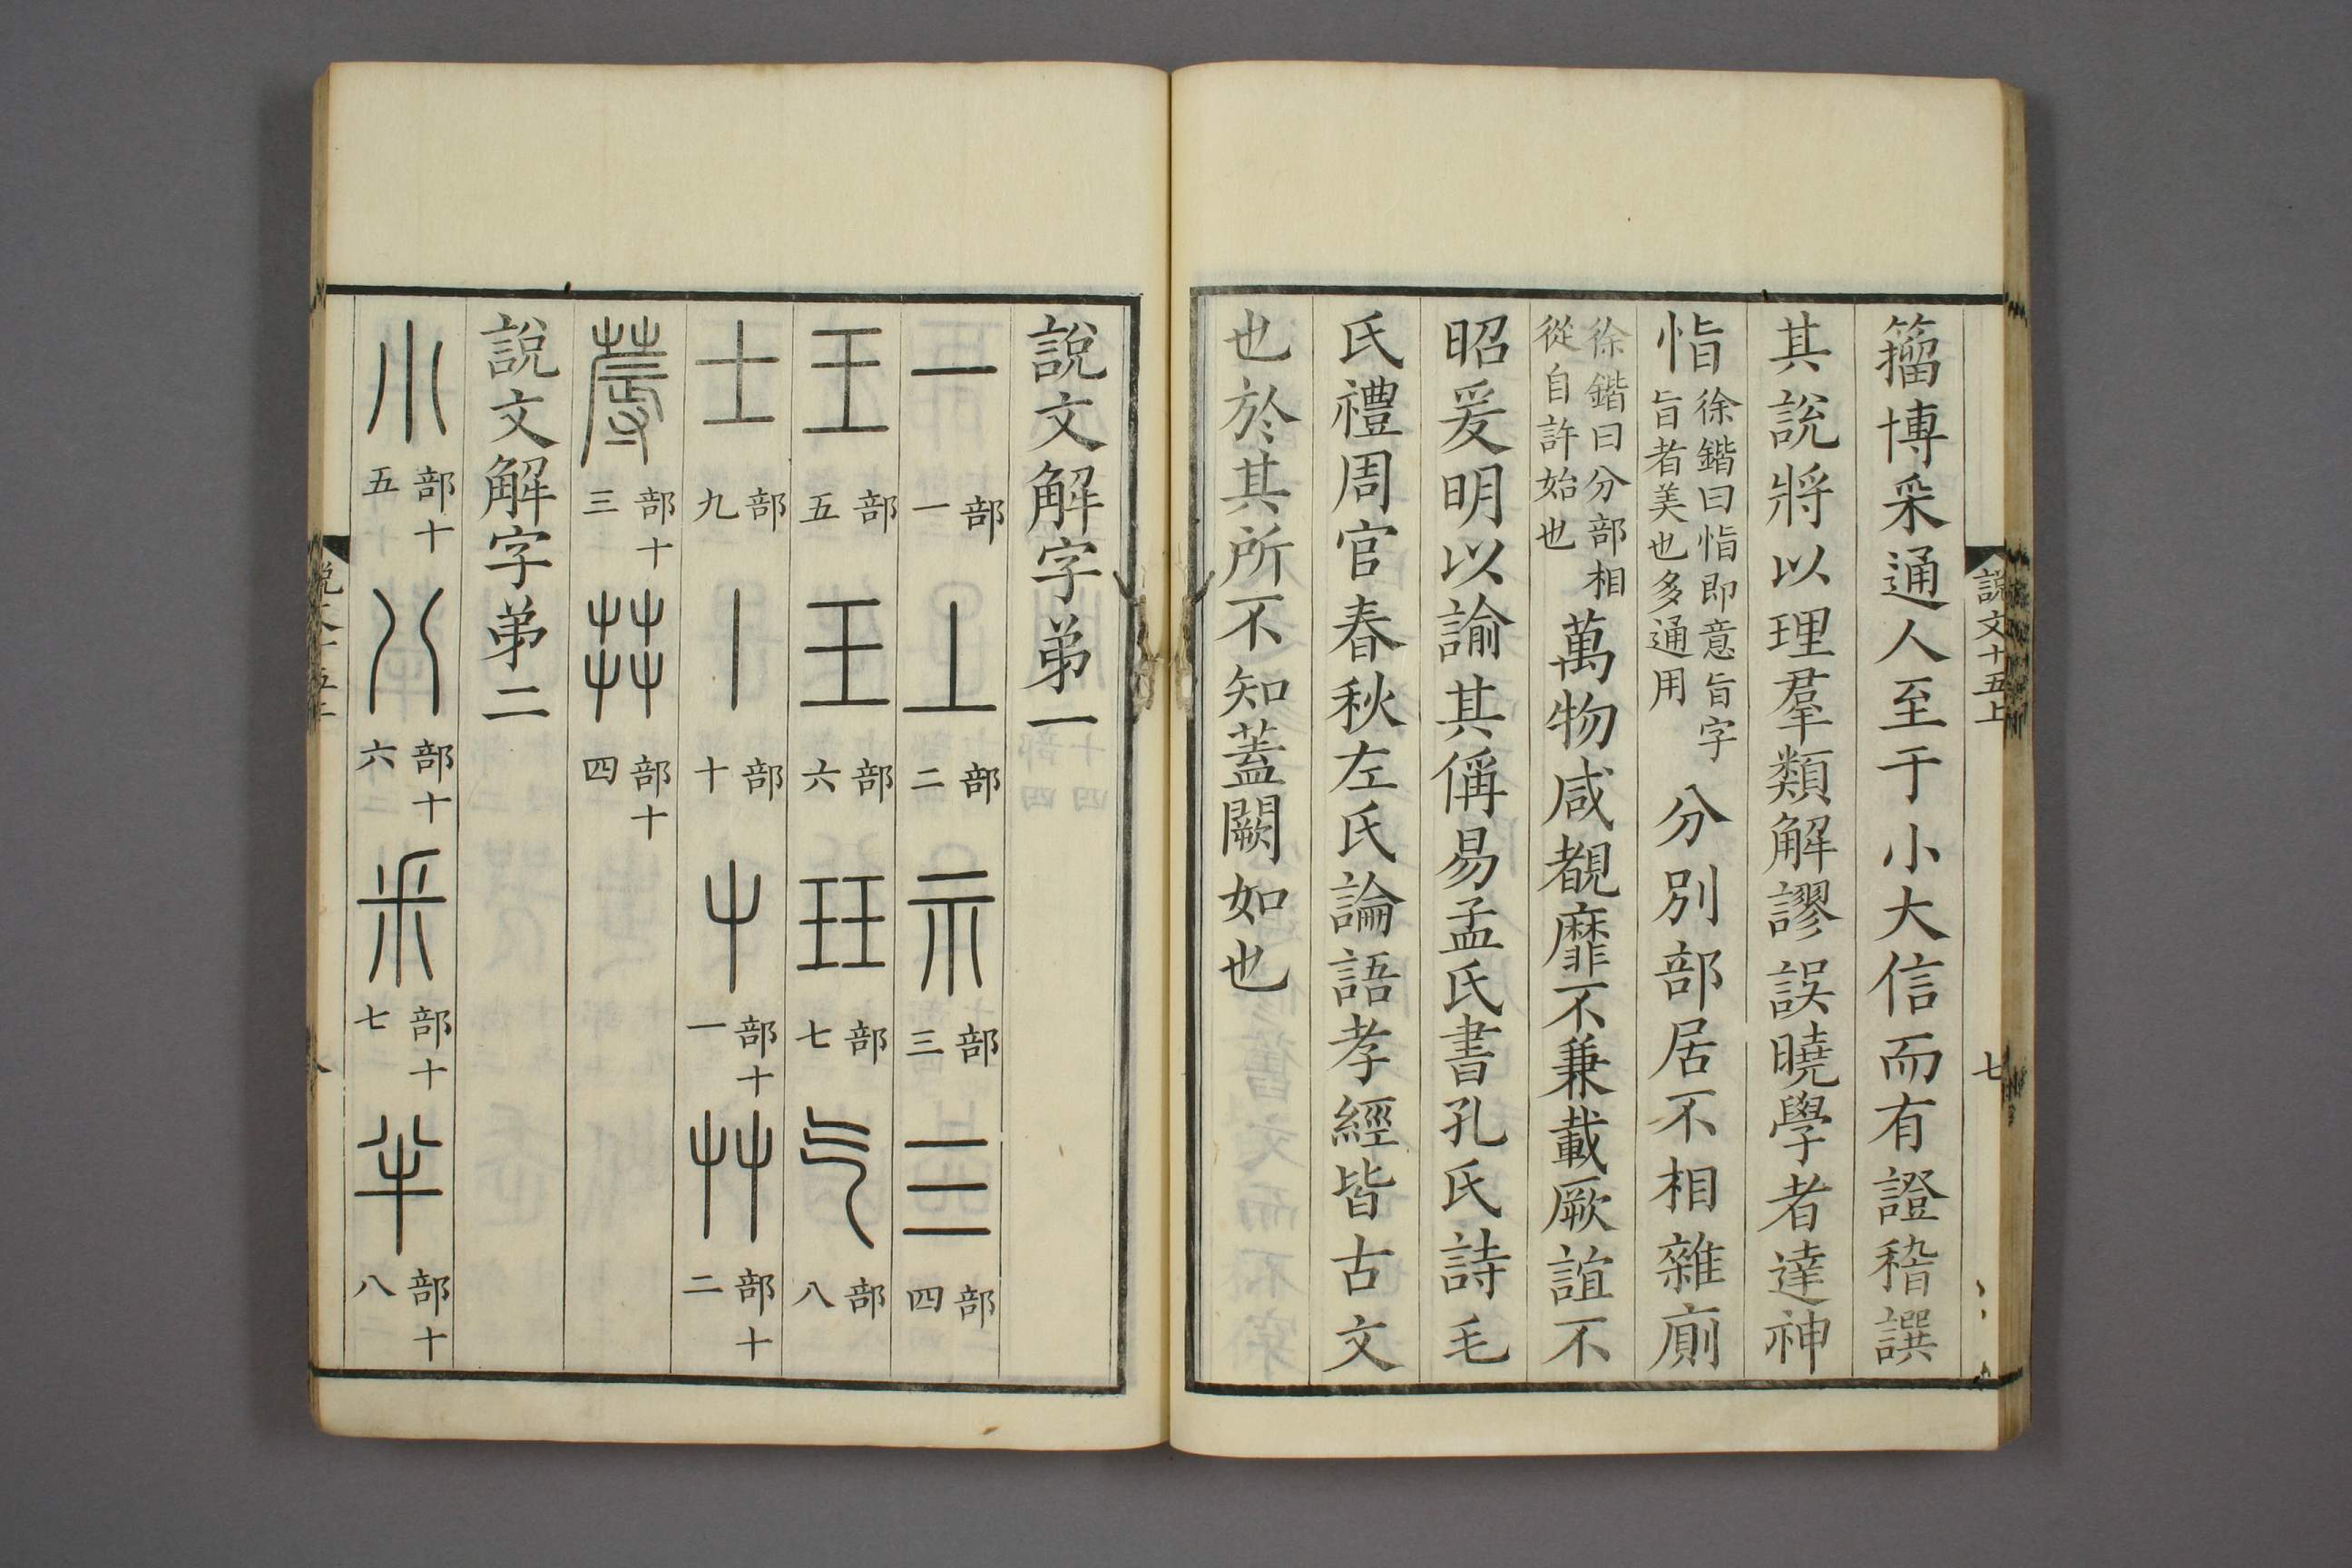 說文十五上
七
籀博采通人至于小大信而有證稽譔
其說將以理羣類解謬誤曉學者達神
恉徐鍇曰恉即意旨字旨者美也多通用分別部居不相雜廁
徐鍇曰分部相從自許始也萬物咸覩靡不兼載厥誼不
昭爰明以諭其偁易孟氏書孔氏詩毛
氏禮周官春秋左氏論語孝經皆古文
也於其所不知蓋闕如也
說文解字弟一
一部一丄部二示部三三部四
王部五王部六玨部七气部八
士部九丨部十屮部十一艸部十二
蓐部十三茻部十四
說文解字弟二
小部十五八部十六釆部十七半部十八